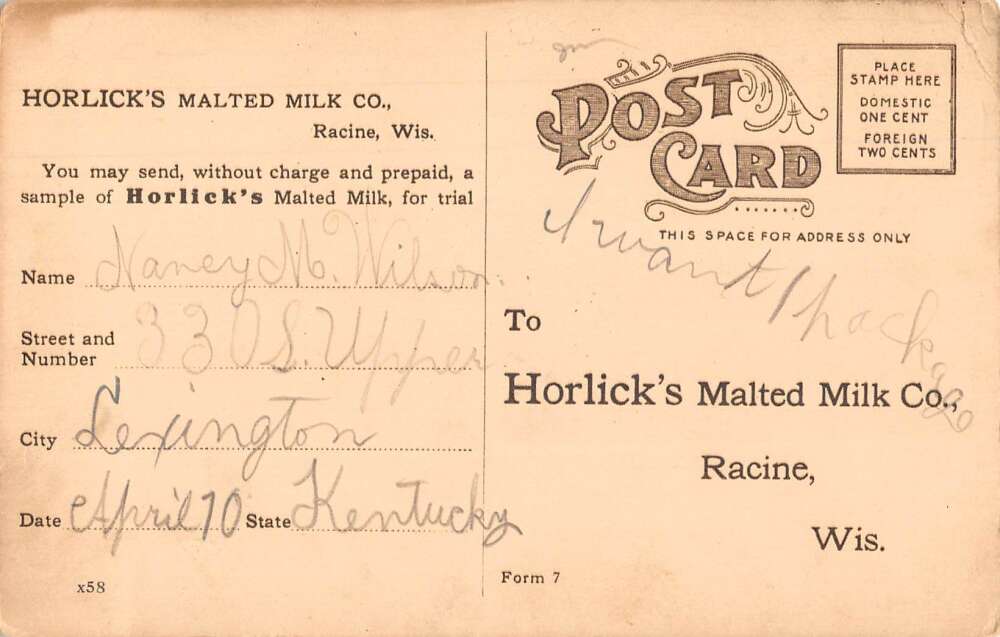 HORLICK'S MALTED MILK CO.,
Racine, Wis.
You may send, without charge and prepaid, a
sample of Horlick's Malted Milk, for trial
Name Nancy M. Wilson.
Street and
Number 330 S. Upper
City Lexington
Date April 10 State Kentucky
x58
POST
CARD
THIS SPACE FOR ADDRESS ONLY
PLACE
STAMP HERE
DOMESTIC
ONE CENT
FOREIGN
TWO CENTS
I want 1 package
To
Horlick's Malted Milk Co.,
Racine,
Wis.
Form 7